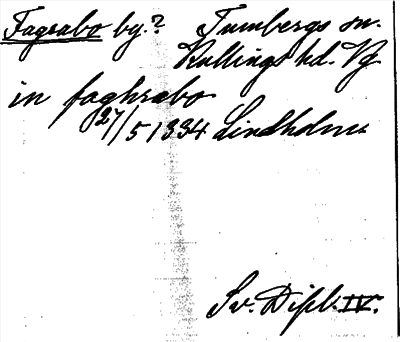 Fagrabo by.? Tumbergs sn.
Kullings hd. Vg
in faghrabo
27/5 1334 Lindholm.
Sv. Dipl. IV.